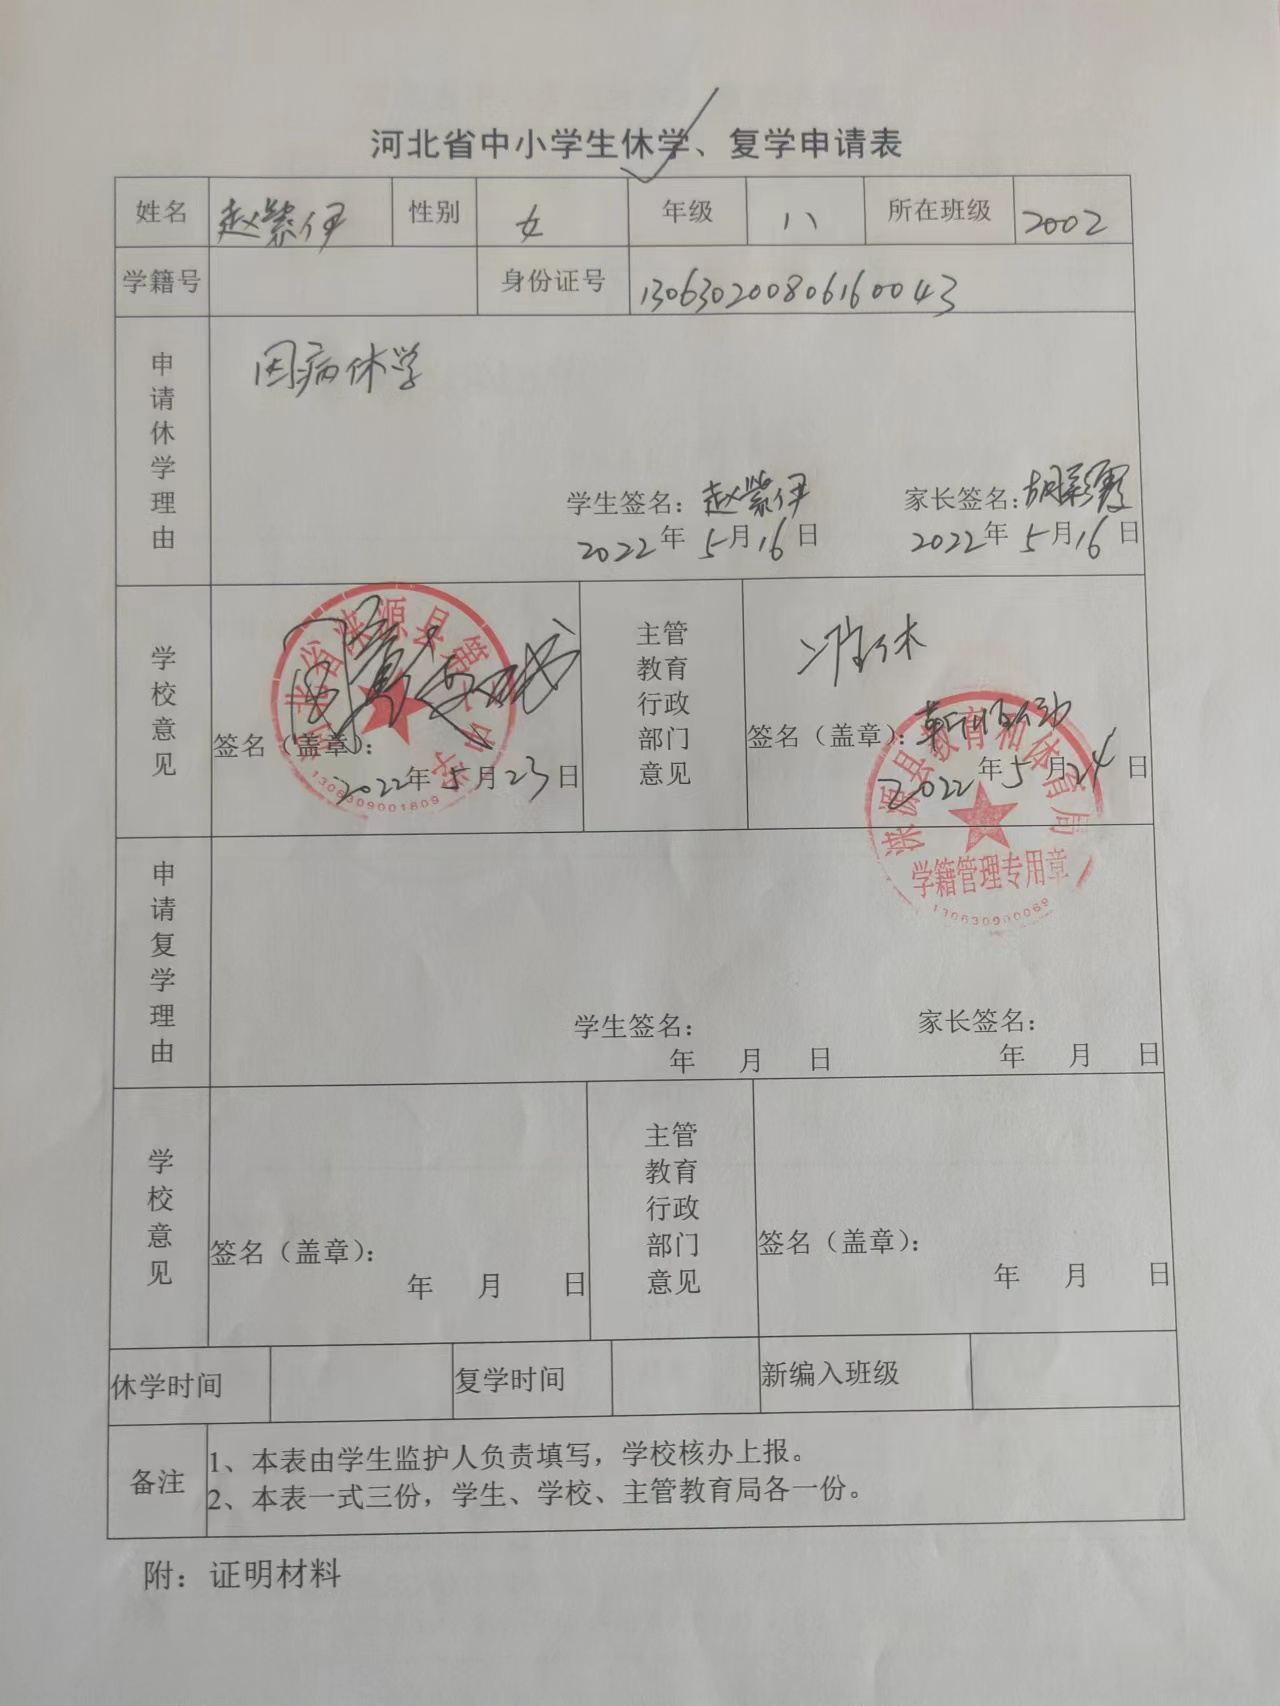 河北省中小学生休学、复学申请表
姓名 赵紫伊 性别 女 年级 八 所在班级 2002
学籍号 身份证号 130630200806160043
申请休学理由
因病休学
学生签名：赵紫伊 家长签名：胡彩霞
2022年5月16日 2022年5月16日
学校意见
同意
签名（盖章）：
2022年5月23日
河北省涞源县第 中学
1306309001809
主管教育行政部门意见
准休
签名（盖章）：
2022年5月24日
涞源县教育和体育局
学籍管理专用章
130630900068
申请复学理由
学生签名： 家长签名：
年 月 日 年 月 日
学校意见
签名（盖章）：
年 月 日
主管教育行政部门意见
签名（盖章）：
年 月 日
休学时间 复学时间 新编入班级
备注
1、本表由学生监护人负责填写，学校核办上报。
2、本表一式三份，学生、学校、主管教育局各一份。
附：证明材料